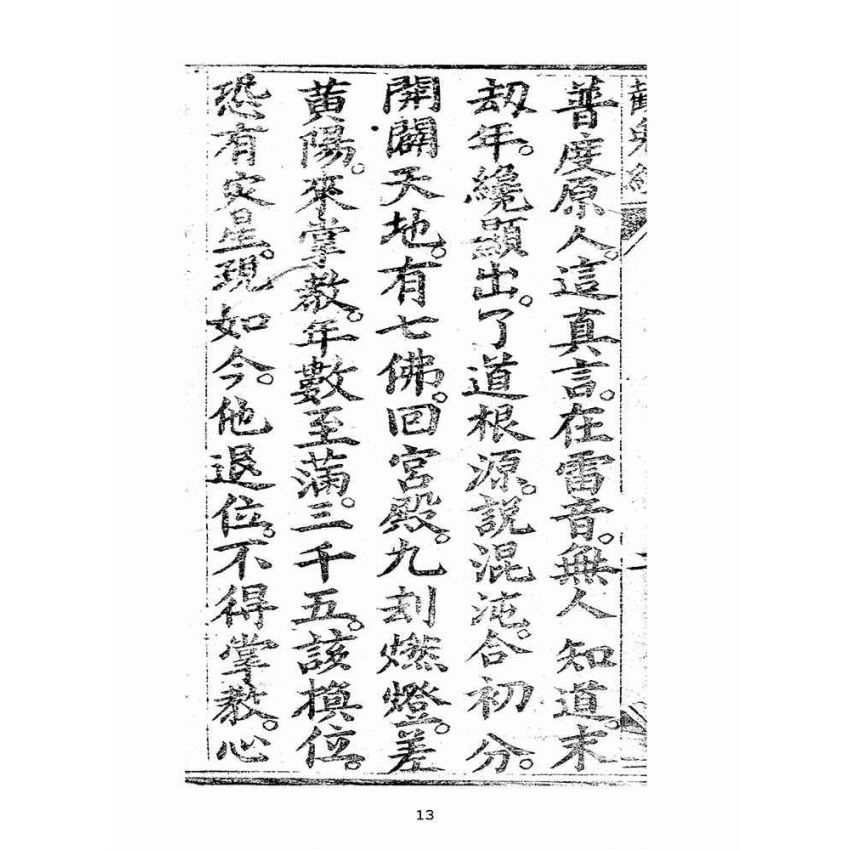 普度原人。這真言。在雷音。無人知道。末
刼年。纔顯出。了道根源。說混沌。合初分。
開闢天地。有七佛。回宮殿。九刦燃燈。差
黃陽。來掌教。年數至滿。三千五。該換位。
恐有灾星。現如今。他退位。不得掌教。心
13